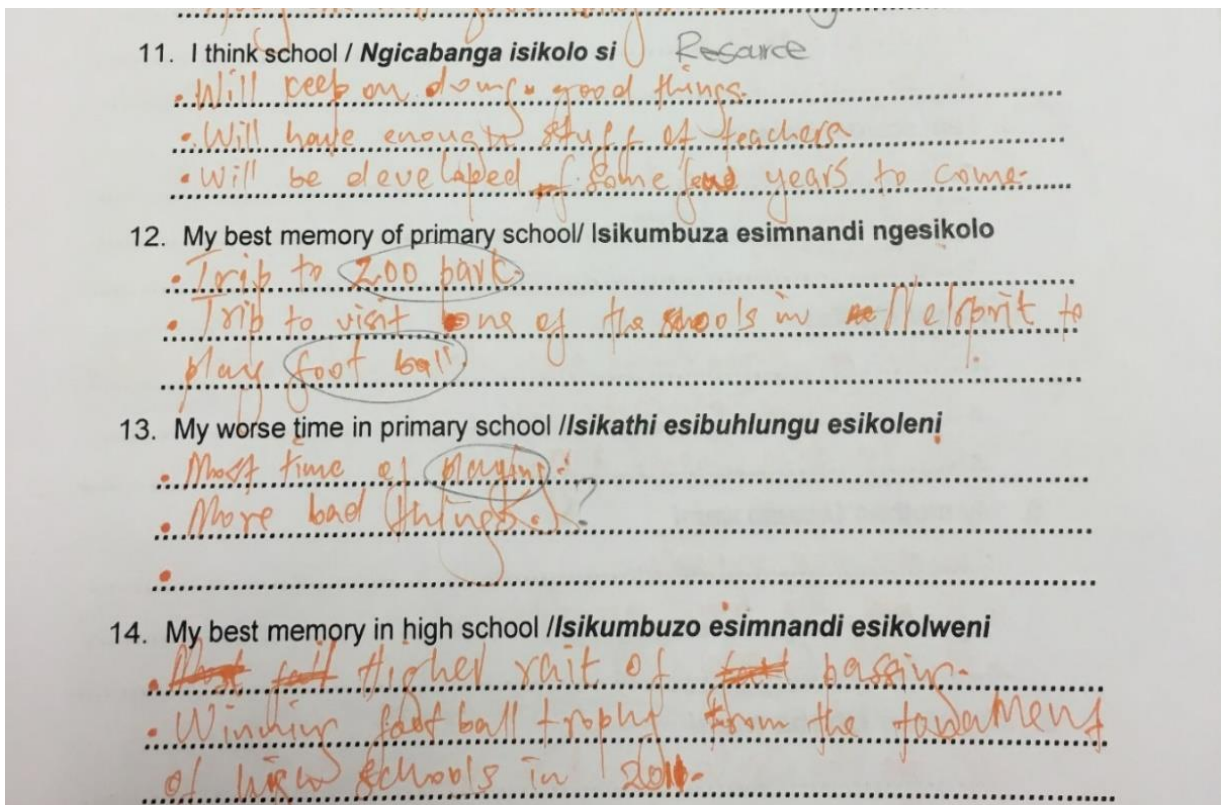 11. I think school / Ngicabanga isikolo si Resource
• Will keep on doing good things.
• Will have enough stuff of teachers
• Will be developed some years to come.
12. My best memory of primary school/ Isikumbuza esimnandi ngesikolo
• Trip to zoo park.
• Trip to visit one of the schools in nellelsprit to
play foot ball.
13. My worse time in primary school /Isikathi esibuhlungu esikoleni
• Most time of playing.
• More bad things. ?
•
14. My best memory in high school /Isikumbuzo esimnandi esikolweni
• Higher rait of passing.
• Winning foot ball trophy from the
of high schools in